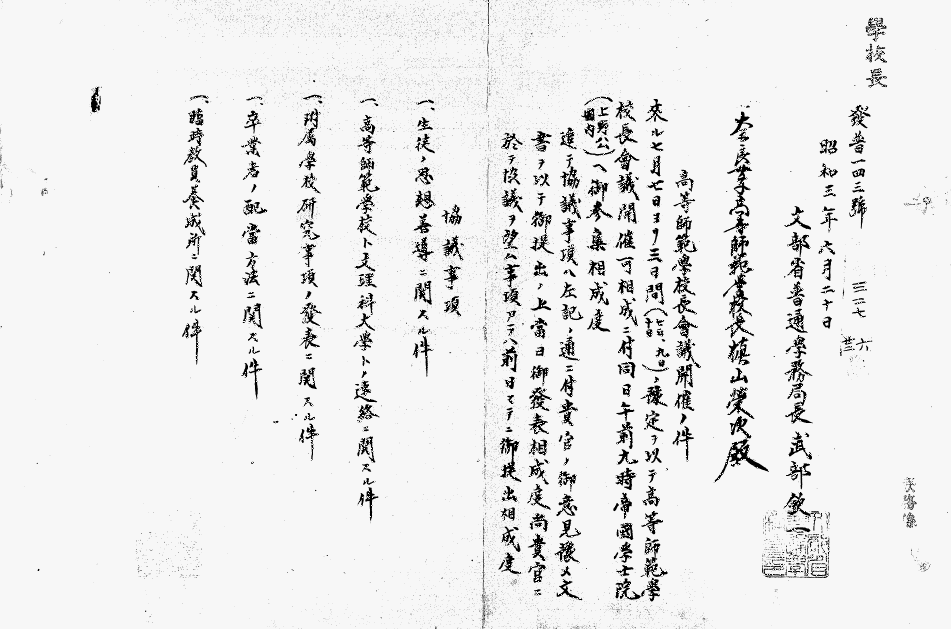 學校長
發普一四三號
三二七
昭和三年六月二十日
文部省普通學務局長 武部欽一
奈良女子高等師範學校長槇山榮次殿
高等師範學校長會議開催ノ件
來ル七月七日ヨリ三日間(七、八、九日)ノ豫定ヲ以テ高等師範學
校長會議開催可相成ニ付同日午前九時帝國學士院
(上野公園內)ヘ御參集相成度
追テ協議事項ハ左記ノ通ニ付貴官ノ御意見豫メ文
書ヲ以テ御提出ノ上當日御發表相成度尚貴官ニ
於テ協議ヲ望ム事項アラバ前日マデニ御提出相成度
協議事項
一、生徒ノ思想善導ニ關スル件
一、高等師範學校ト文理科大學トノ連絡ニ關スル件
一、附属學校研究事項ノ發表ニ關スル件
一、卒業者ノ配當方法ニ關スル件
一、臨時敎員養成所ニ關スル件